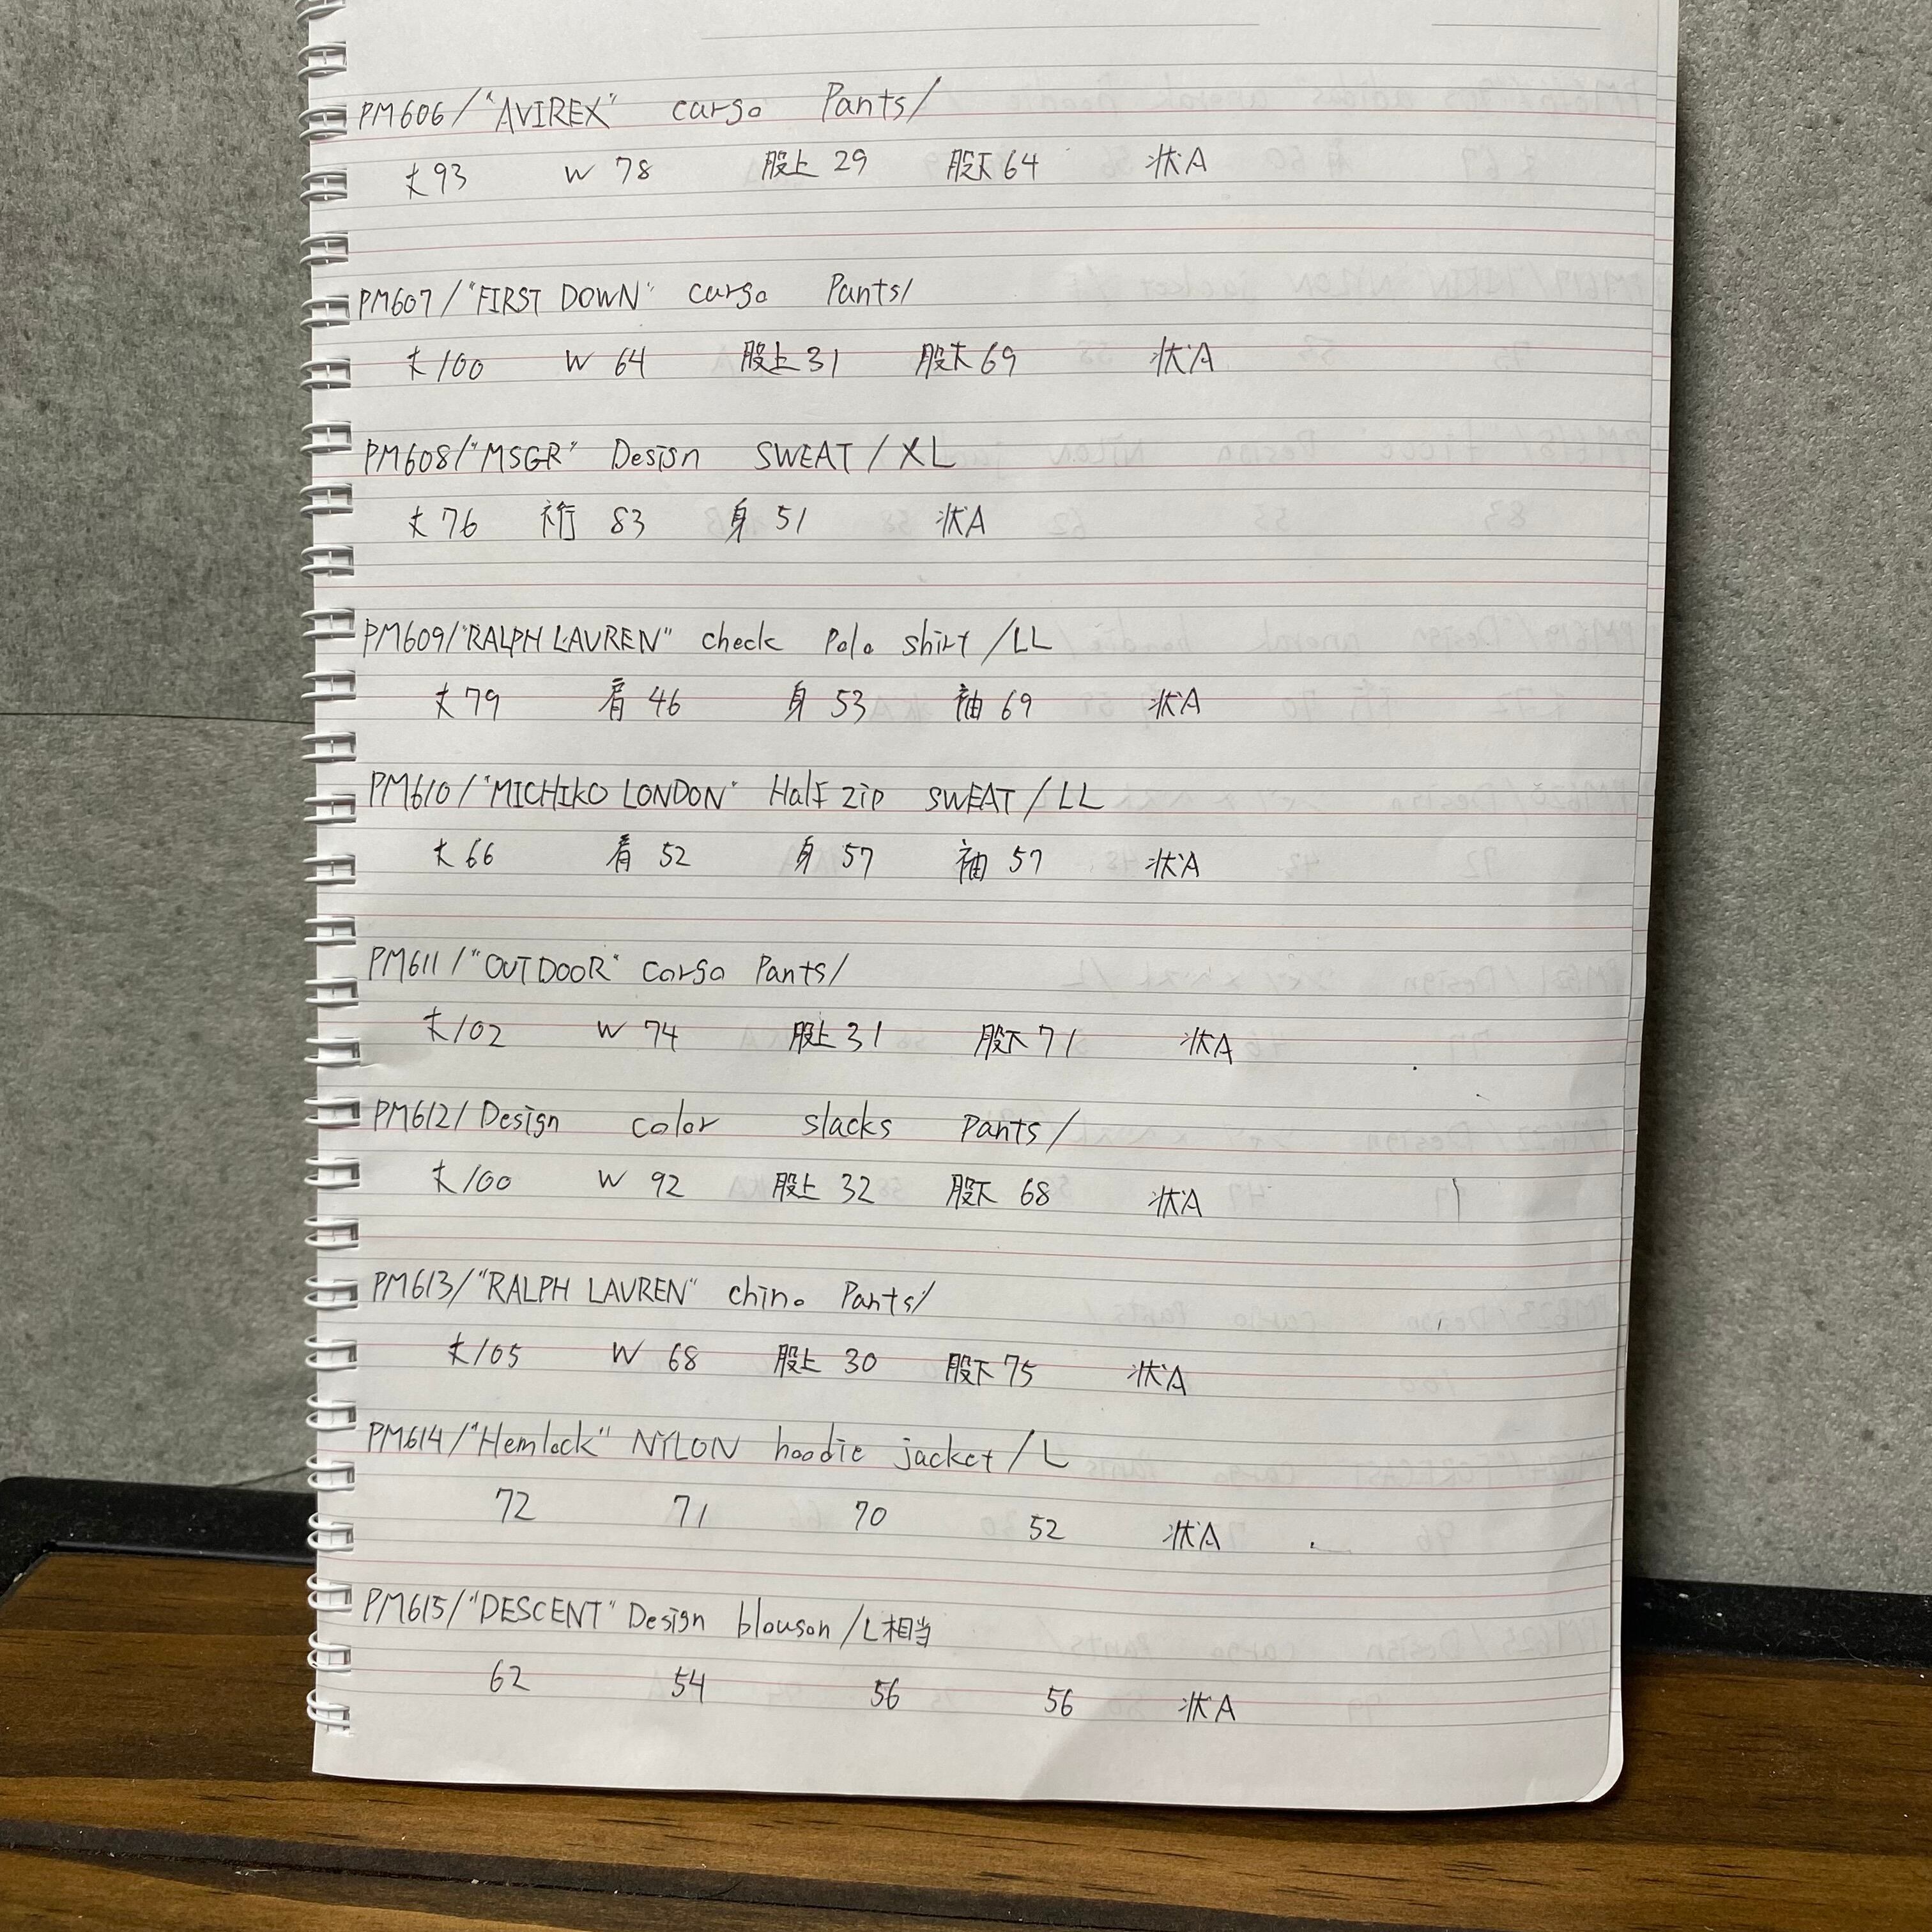 PM606/"AVIREX" cargo Pants/
丈93 W 78 股上 29 股下 64 状A
PM607/"FIRST DOWN" cargo Pants/
丈100 W 64 股上 31 股下 69 状A
PM608/"MSGR" Design SWEAT/XL
丈76 裄 83 身 51 状A
PM609/"RALPH LAUREN" check Polo shirt/LL
丈79 肩 46 身 53 袖 69 状A
PM610/"MICHIKO LONDON" Half zip SWEAT/LL
丈66 肩 52 身 57 袖 57 状A
PM611/"OUTDOOR" cargo Pants/
丈102 W 74 股上 31 股下 71 状A
PM612/Design color slacks Pants/
丈100 W 92 股上 32 股下 68 状A
PM613/"RALPH LAUREN" chino Pants/
丈105 W 68 股上 30 股下 75 状A
PM614/"Hemlock" NYLON hoodie jacket/L
72 71 70 52 状A
PM615/"DESCENT" Design blouson/L相当
62 54 56 56 状A